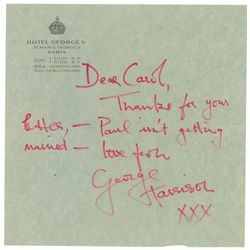 HOTEL GEORGE V
PARIS
Dear Carol,
Thanks for your
letter, — Paul isn't getting
married — love from
George
Harrison
XXX